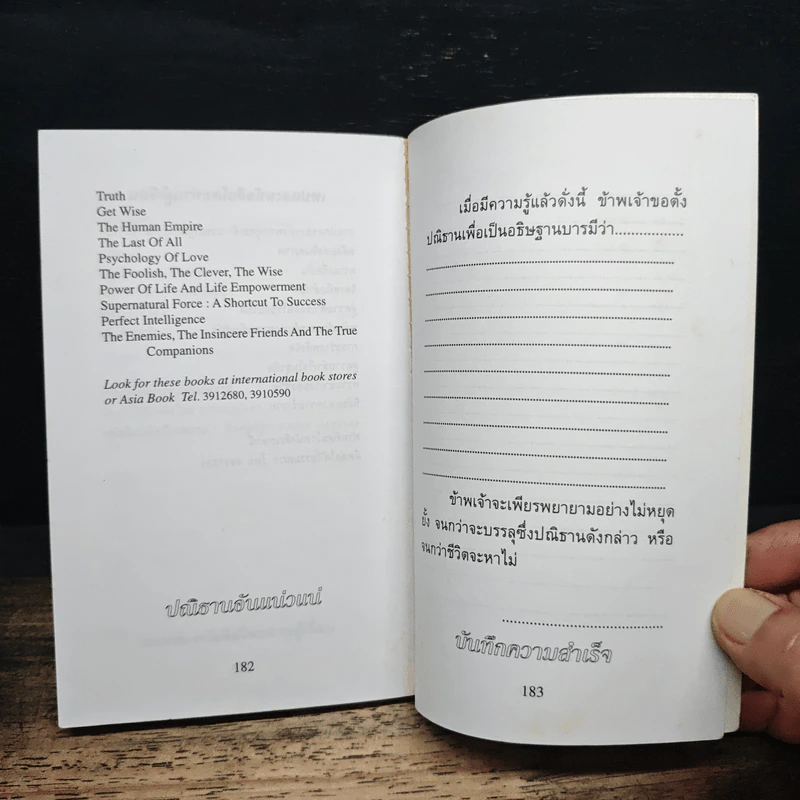 Truth
Get Wise
The Human Empire
The Last Of All
Psychology Of Love
The Foolish, The Clever, The Wise
Power Of Life And Life Empowerment
Supernatural Force : A Shortcut To Success
Perfect Intelligence
The Enemies, The Insincere Friends And The True
Companions
Look for these books at international book stores
or Asia Book Tel. 3912680, 3910590
ปณิธานอันแน่วแน่
182
เมื่อมีความรู้แล้วดั่งนี้ ข้าพเจ้าขอตั้ง
ปณิธานเพื่อเป็นอธิษฐานบารมีว่า.................
ข้าพเจ้าจะเพียรพยายามอย่างไม่หยุด
ยั้ง จนกว่าจะบรรลุซึ่งปณิธานดังกล่าว หรือ
จนกว่าชีวิตจะหาไม่
บันทึกความสำเร็จ
183